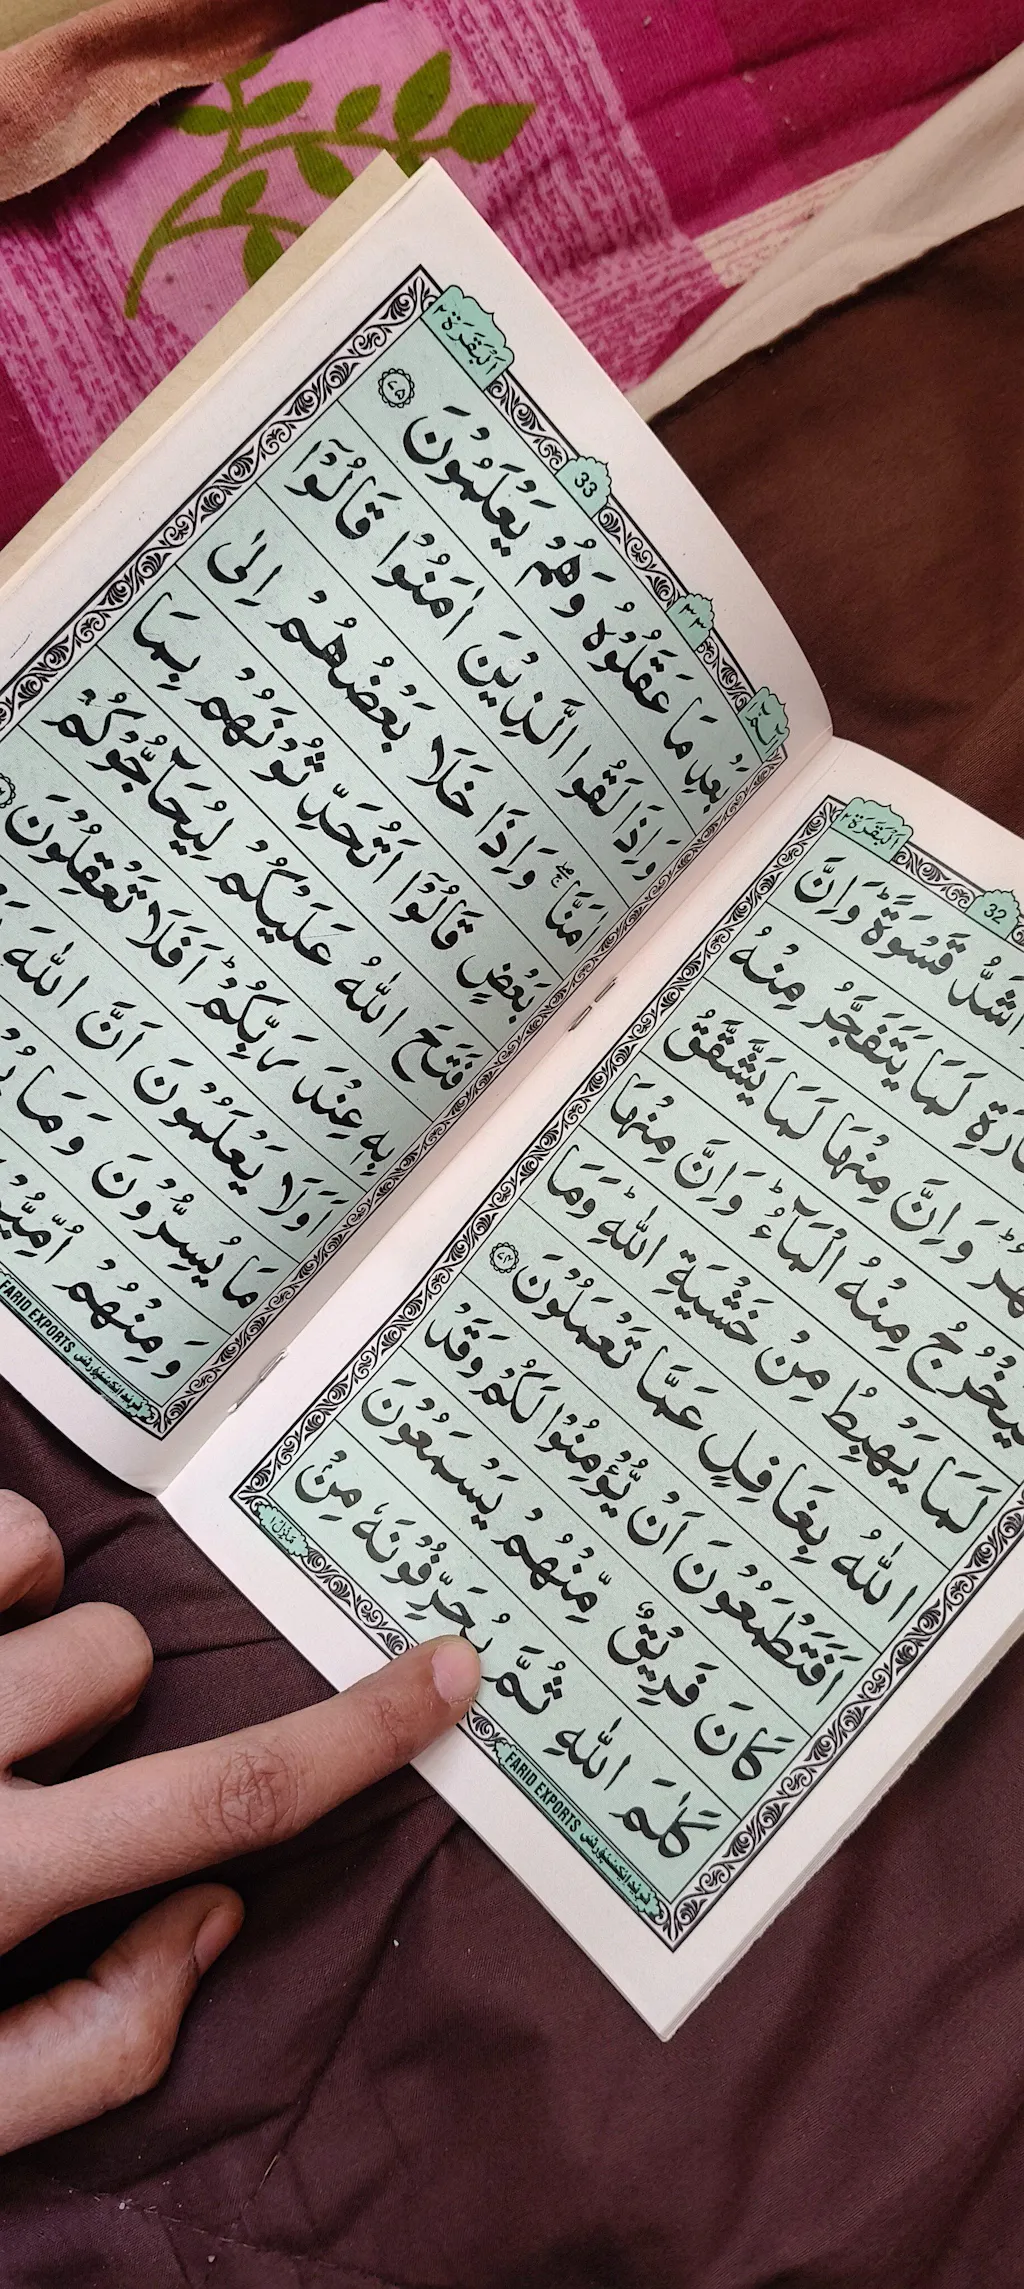 اَلْبَقَرَة ٢
32
اَشَدُّ قَسْوَةً ؕ وَاِنَّ
لَمَا يَتَفَجَّرُ مِنْهُ
وَاِنَّ مِنْهَا لَمَا يَشَّقَّقُ
فَيَخْرُجُ مِنْهُ الْمَآءُ ؕ وَاِنَّ مِنْهَا
لَمَا يَهْبِطُ مِنْ خَشْيَةِ اللّٰهِ ؕ وَمَا
اللّٰهُ بِغَافِلٍ عَمَّا تَعْمَلُوْنَ ٧٤
اَفَتَطْمَعُوْنَ اَنْ يُّؤْمِنُوْا لَكُمْ وَقَدْ
كَانَ فَرِيْقٌ مِّنْهُمْ يَسْمَعُوْنَ
كَلٰمَ اللّٰهِ ثُمَّ يُحَرِّفُوْنَهٗ مِنْۢ
منزل ١
FARID EXPORTS فرید ایکسپورٹس
اَلْبَقَرَة ٢
33
٣٣
بَعْدِ مَا عَقَلُوْهُ وَهُمْ يَعْلَمُوْنَ ٧٥
وَاِذَا لَقُوا الَّذِيْنَ اٰمَنُوْا قَالُوْٓا
اٰمَنَّا ۖۚ وَاِذَا خَلَا بَعْضُهُمْ اِلٰى
بَعْضٍ قَالُوْٓا اَتُحَدِّثُوْنَهُمْ بِمَا
فَتَحَ اللّٰهُ عَلَيْكُمْ لِيُحَآجُّوْكُمْ
بِهٖ عِنْدَ رَبِّكُمْ ؕ اَفَلَا تَعْقِلُوْنَ
اَوَلَا يَعْلَمُوْنَ اَنَّ اللّٰهَ
مَا يُسِرُّوْنَ وَمَا
وَمِنْهُمْ
FARID EXPORTS فرید ایکسپورٹس